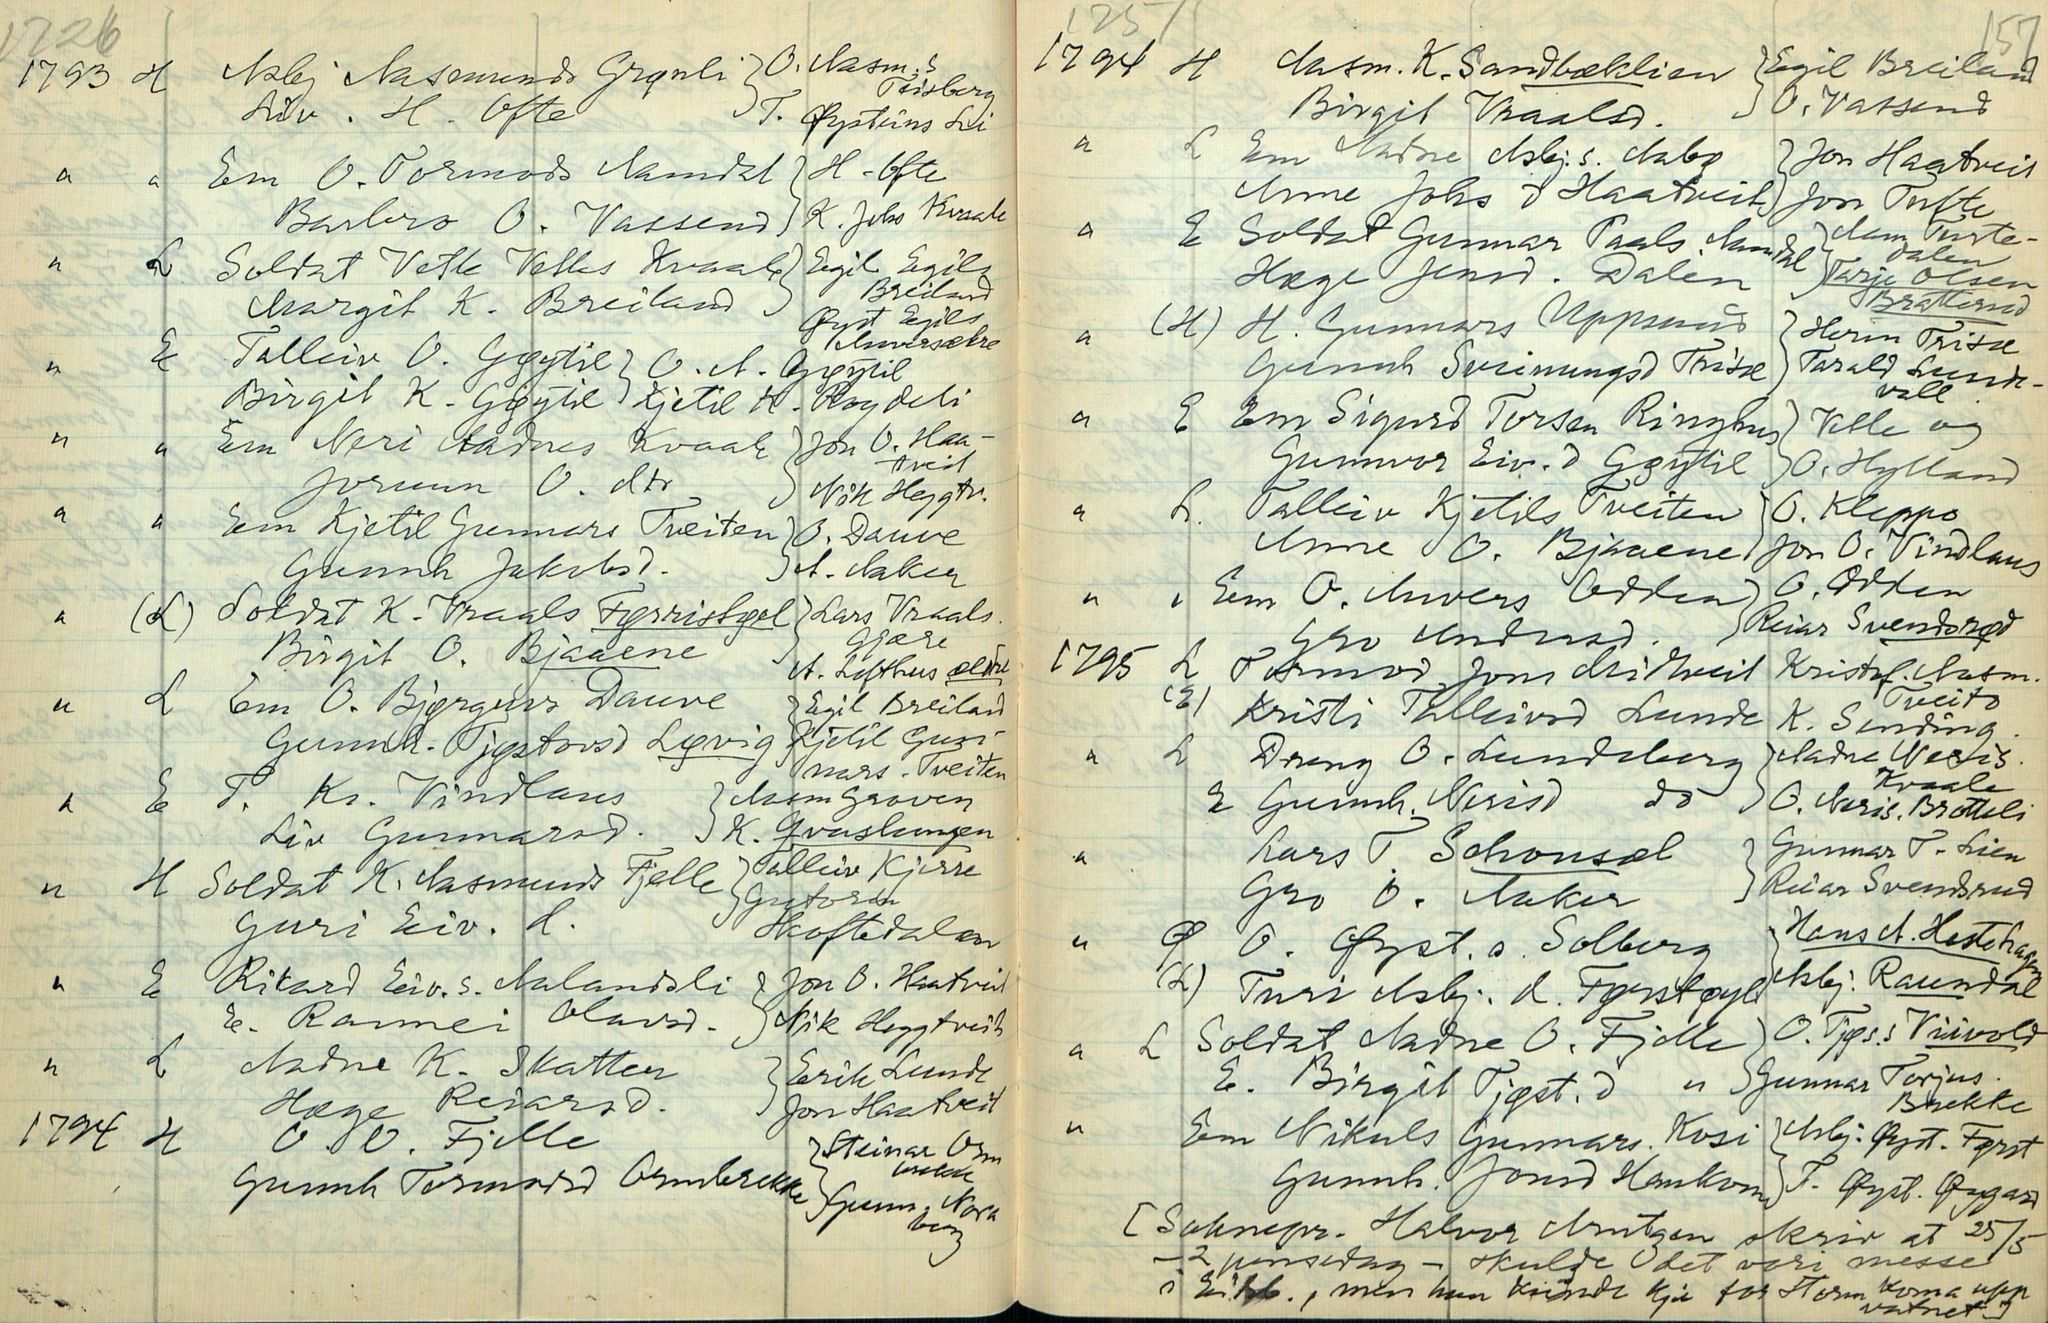 1726
1793 H Asbj Aasmunds Grønli } O. Aasm. s
Teisberg
Liv. H. Ofte } T. Øysteins Li
" " Em O. Tormods Aamdal } H. Ofte
Barbro O. Vassend } K. Johs Kvaale
" L Soldat Vetle Vetles Kvaale } Egil Egils
Breiland
Margit K. Breiland } Øyst Egils
" E Talleiv O. Gøytil } O. A. Gøytil
Birgit K. Gøytil } Kjetil H. Røydeli
" " Em Neri Aadnes Kvaale } Jon O. Haa-
tveit
Jorunn O. dtr } Nik Heggtv.
" " Em Kjetil Gunnars Tveiten } O. Dauve
Gunnh Jakobsd. } A. Aaker
" (L) Soldat K. Vraals Førristøl } Lars Vraals.
Gjære
Birgit O. Bjaaene } A. Lofthus ældre
" L Em O. Bjørguvs Dauve } Egil Breiland
Gunnh. Tjøstovsd Løvig } Kjetil Gun-
nars. Tveiten
" E T. Kr. Vindlaus } Aasm Groven
Liv Gunnarsd. } K.
" H Soldat K. Aasmunds Fjelle } Talleiv Kjerre
Guri Eiv. d. } Guttorm
Hoftedalen
" E Rikard Eiv. s. Aalandsli } Jon O. Haatveit
E. Rannei Olavsd. } Nik Heggtveit
" L Aadne K. Skatten } Erik Lunde
Hæge Reiarsd. } Jon Haatveit
1794 H O O. Fjelle } Steinar Orm
brekke
Gunnh Tormodsd Ormbrekke } Gunn. Nora
berg
1257 157
1794 H Aasm. K. Sandbæklien } Egil Breiland
Birgit Vraalsd. } O. Vassend
" L Em Aadne Asbj. s. Aabø } Jon Haatveit
Anne Johs d Haatveit } Jon Tufte
" E Soldat Gunnar Paals Aamdal } Aam Turte-
dalen
Hæge Jonsd. Dalen } Tarje Olsen
Bratterud
" (H) H. Gunnars Uppsund } Herm Trisæ
Gunnh Sveinungsd Trisæ } Tarald Lunde-
vall
" E Em Sigurd Torsen Ringhus } Vetle og
Gunnvor Eiv. d Gøytil } O. Hylland
" L. Talleiv Kjetils Tveiten } O. Kleppo
Anne O. Bjaaene } Jon O. Vindlaus
" " Em O. Anvers Odden } O. Odden
Gro Andersd. } Reiar Svendsrød
1795 L Tormod Jons Midtveit Kristof. Aasm.
Tveito
(E) Kristi Talleivsd Lunde K. Sunding.
" L Dreng O. Lundeberg } Aadne Neris.
Kvaale
E Gunnh. Nerisd do } O. Neris. Brotteli
" Lars T. Schonsæl } Gunnar T. Lien
Gro O. Aaker } Reiar Svendsrud
" Ø O. Øyst. s. Solberg } Hans A. Hestehagen
(L) Turi Asbj. d. Førstøyl Asbj. Raundal
" L Soldat Aadne O. Fjelle } O. Tjøs. s Viivold
E. Birgit Tjøst. d " } Gunnar Torjus.
Brekke
" Em Nikuls Gunnars. Kosi } Asbj. Øyst. Først
Gunnh. Jonsd Haukom } T. Øyst. Øygard
[Soknepr. Halvor Arntzen skriv at 25/5
- 2 pinsedag - skulde det veri messe
i Eikb., men han kunde kje for storm koma upp
vatnet.]